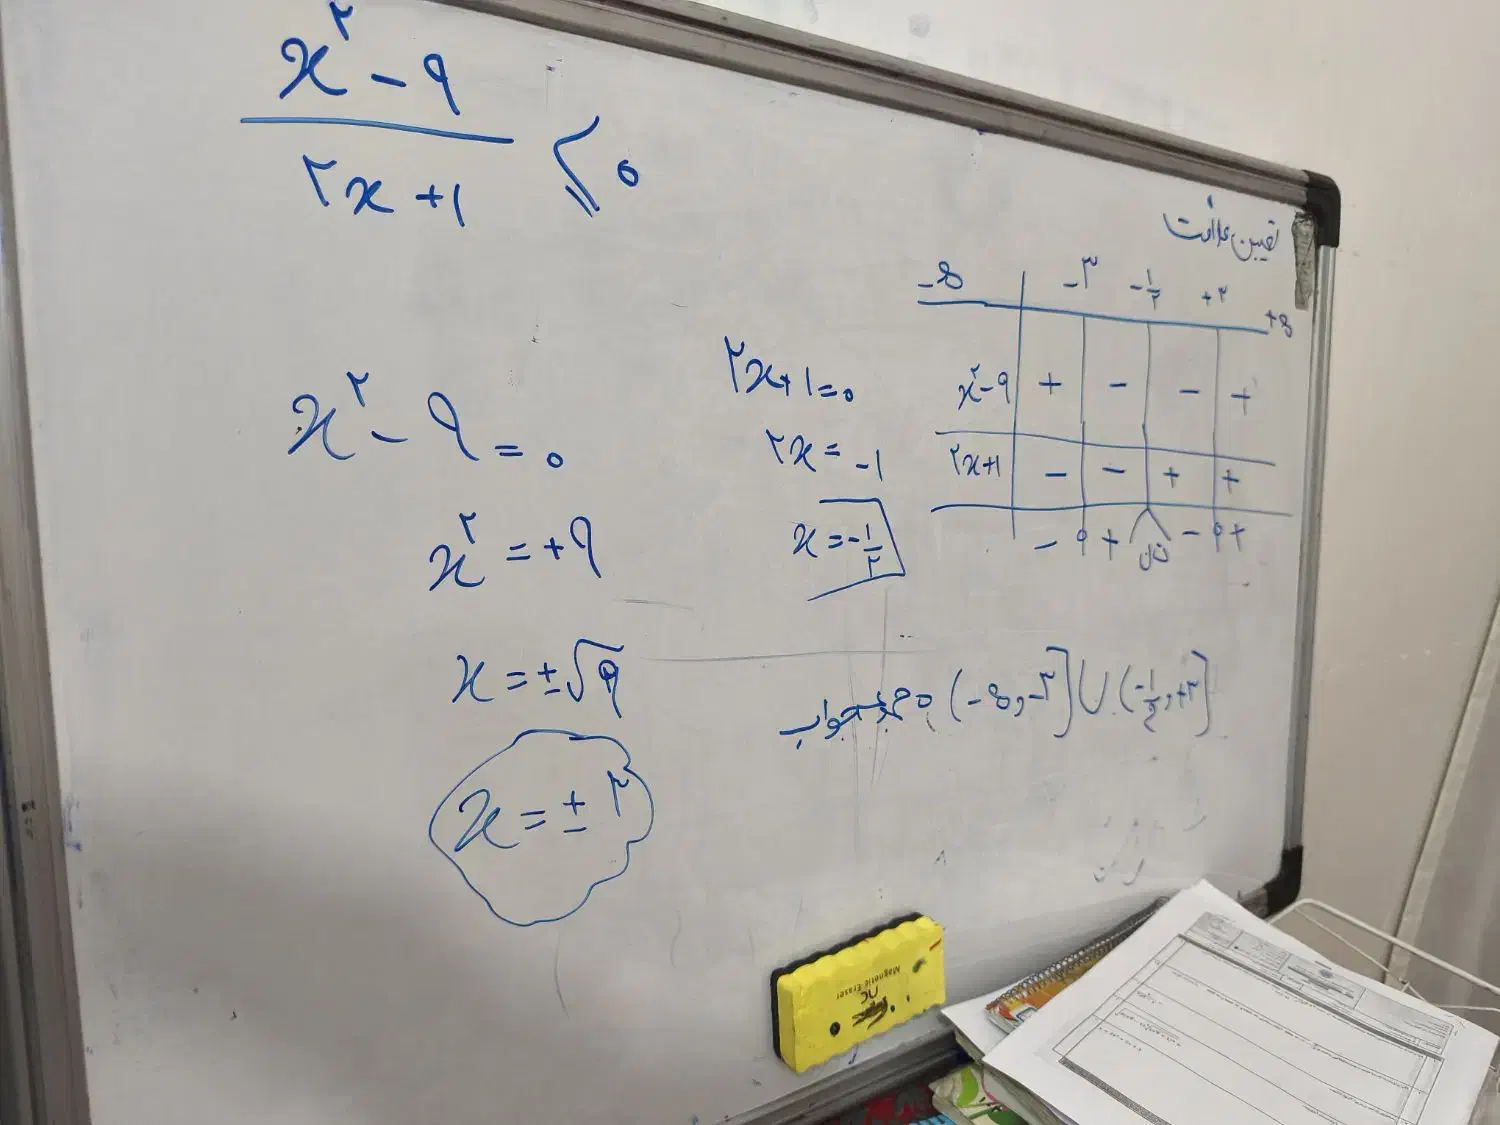 x² - ۹
۲x + ۱
≤ ۰
x² - ۹ = ۰
x² = +۹
x = ±√۹
x = ± ۳
۲x + ۱ = ۰
۲x = -۱
x = -۱/۲
تعیین علامت
-∞ -۳ -۱/۲ +۳ +∞
x² - ۹ + - - +
۲x+۱ - - + +
- ۰ + ت ن - ۰ +
مجموعه جواب (-∞, -۳] ∪ (-۱/۲, +۳]
Magnetic Eraser